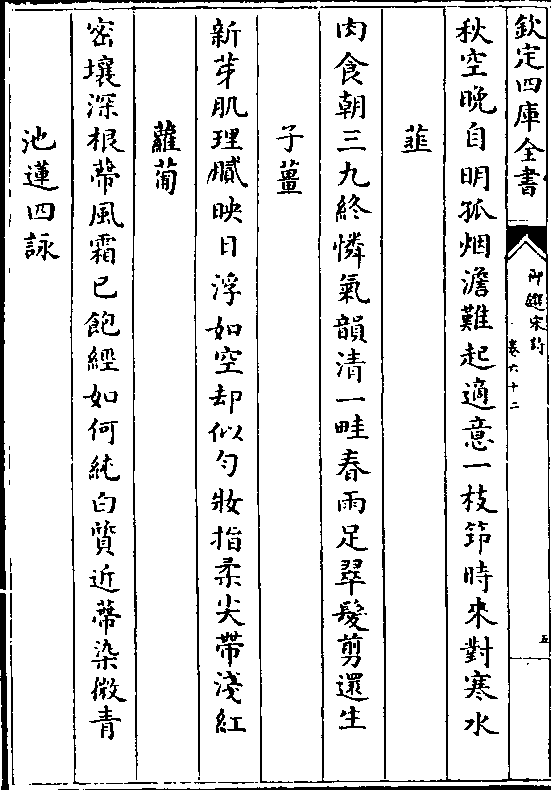 欽定四庫全書
御選宋詩
卷六十二
五
秋空晩自明孤烟澹難起適意一枝笻時來對寒水
韮
肉食朝三九終憐氣韻清一畦春雨足翠髮剪還生
子薑
新芽肌理膩映日浮如空却似勻妝指柔尖帶淺紅
蘿蔔
密壤深根蔕風霜已飽經如何純白質近蔕染微青
池蓮四詠